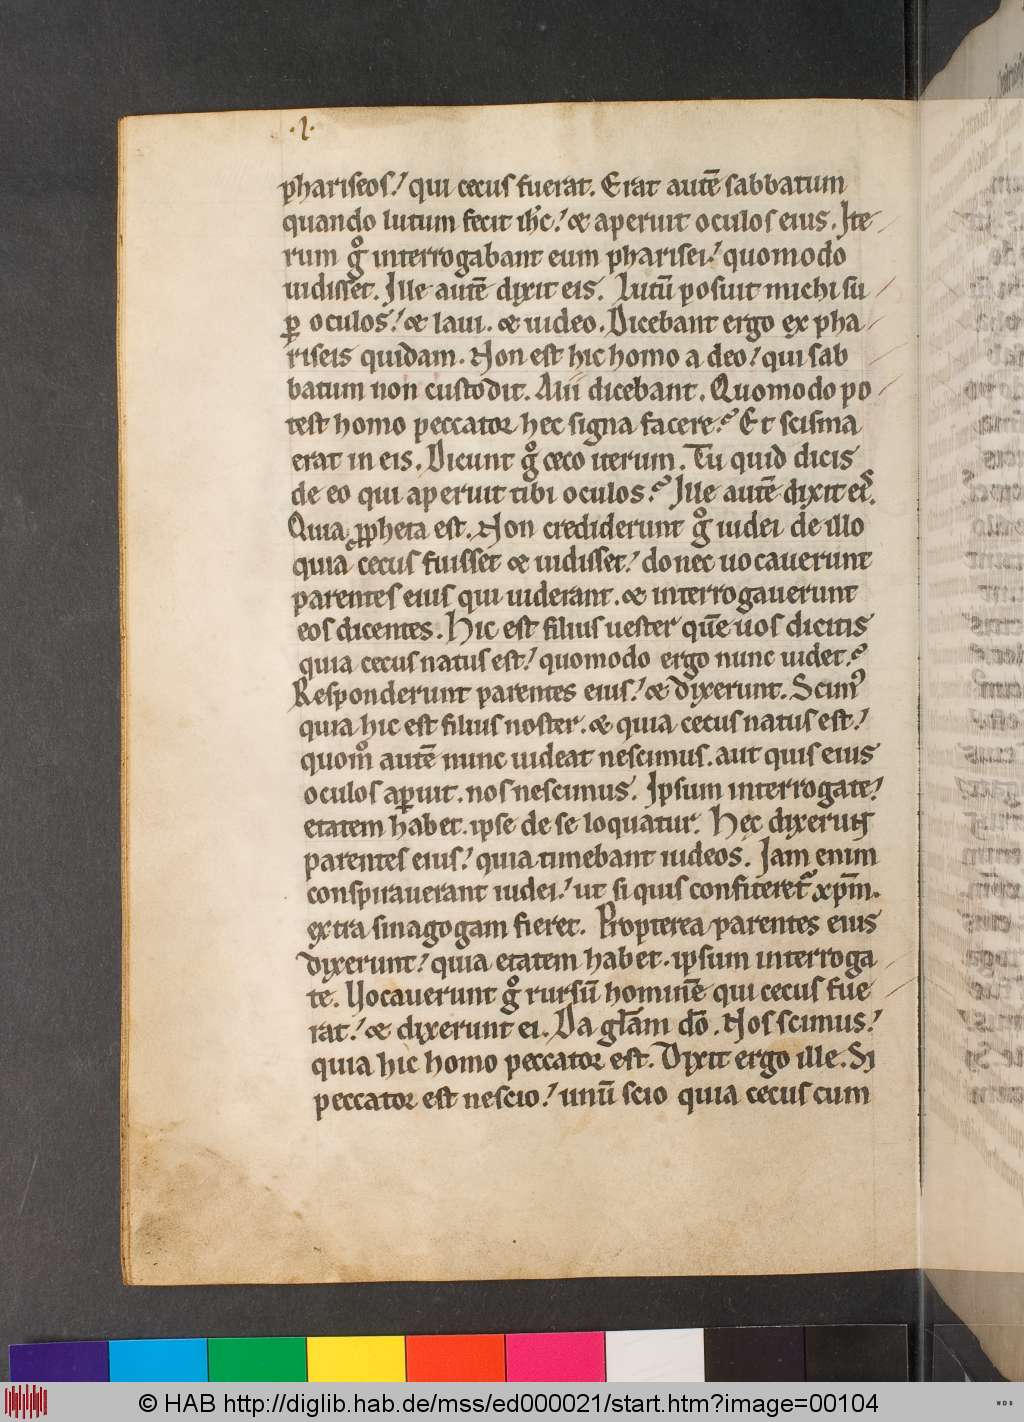 ·l·
phariseos! qui cecus fuerat. Erat autē sabbatum
quando lutum fecit ihc! & aperuit oculos eius. Ite
rum gͦ interrogabant eum pharisei! quomodo
uidisset. Ille autē dixit eis. Lutū posuit michi su
ꝑ oculos! & laui. & uideo. Dicebant ergo ex pha
riseis quidam. Non est hic homo a deo! qui sab
batum non custodit. Alii dicebant. Quomodo po
test homo peccator hec signa facere? Et scisma
erat in eis. Dicunt gͦ ceco iterum. Tu quid dicis
de eo qui aperuit tibi oculos? Ille autē dixit eiˢ.
Quia ꝓpheta est. Non crediderunt gͦ iudei de illo
quia cecus fuisset & uidisset! donec uocauerunt
parentes eius qui uiderant. & interrogauerunt
eos dicentes. Hic est filius uester quē uos dicitis
quia cecus natus est! quomodo ergo nunc uidet?
Responderunt parentes eius! & dixerunt. Scimꝰ
quia hic est filius noster. & quia cecus natus est!
quomͦ autē nunc uideat nescimus. aut quis eius
oculos aꝑuit. nos nescimus. Ipsum interrogate!
etatem habet. ipse de se loquatur. Hec dixerunt
parentes eius! quia timebant iudeos. Iam enim
conspirauerant iudei! ut si quis confiteret᷑ xp̄m.
extra sinagogam fieret. Propterea parentes eius
dixerunt! quia etatem habet. ipsum interroga
te. Uocauerunt gͦ rursū hominē qui cecus fue
rat! & dixerunt ei. Da gl̄am dō. Nos scimus!
quia hic homo peccator est. Dixit ergo ille. Si
peccator est nescio! unū scio quia cecus cum
© HAB http://diglib.hab.de/mss/ed000021/start.htm?image=00104